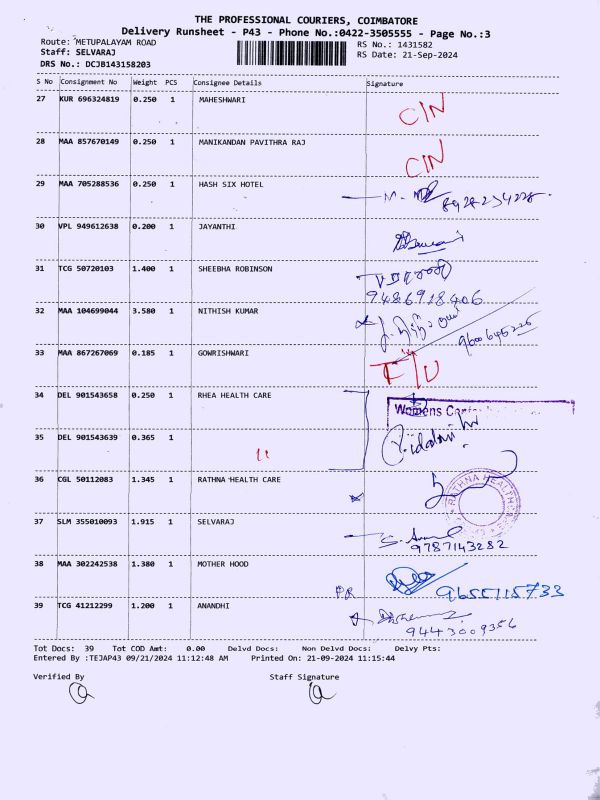 THE PROFESSIONAL COURIERS, COIMBATORE
Delivery Runsheet - P43 - Phone No.:0422-3505555 - Page No.:3
Route: METUPALAYAM ROAD RS No.: 1431582
Staff: SELVARAJ RS Date: 21-Sep-2024
DRS No.: DCJB143158203
S No Consignment No Weight PCS Consignee Details Signature
27 KUR 696324819 0.250 1 MAHESHWARI C/N
28 MAA 857670149 0.250 1 MANIKANDAN PAVITHRA RAJ C/N
29 MAA 705288536 0.250 1 HASH SIX HOTEL
30 VPL 949612638 0.200 1 JAYANTHI
31 TCG 50720103 1.400 1 SHEEBHA ROBINSON
9486918406
32 MAA 104699044 3.580 1 NITHISH KUMAR
9600645226
33 MAA 867267069 0.185 1 GOWRISHWARI
34 DEL 901543658 0.250 1 RHEA HEALTH CARE
Womens
35 DEL 901543639 0.365 1 "
36 CGL 50112083 1.345 1 RATHNA HEALTH CARE
RATHNA HEALTH
37 SLM 355010093 1.915 1 SELVARAJ
9787143282
38 MAA 302242538 1.380 1 MOTHER HOOD
PR 9655115733
39 TCG 41212299 1.200 1 ANANDHI
9443009356
Tot Docs: 39 Tot COD Amt: 0.00 Delvd Docs: Non Delvd Docs: Delvy Pts:
Entered By :TEJAP43 09/21/2024 11:12:48 AM Printed On: 21-09-2024 11:15:44
Verified By Staff Signature